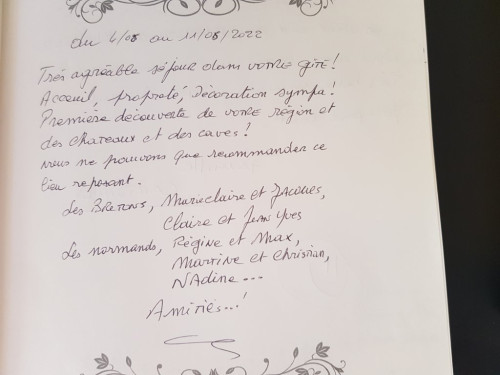 du 4/08 au 11/08/2022
Très agréable séjour dans votre gîte!
Acceuil, propreté, décoration sympa!
Première découverte de votre région et
des chateaux et des caves!
nous ne pouvons que recommander ce
lieu reposant.
Les Bretons, Marieclaire et Jacques,
Claire et Jean Yves
Les normands, Régine et Max,
Martine et Christian,
Nadine...
Amitiés...!